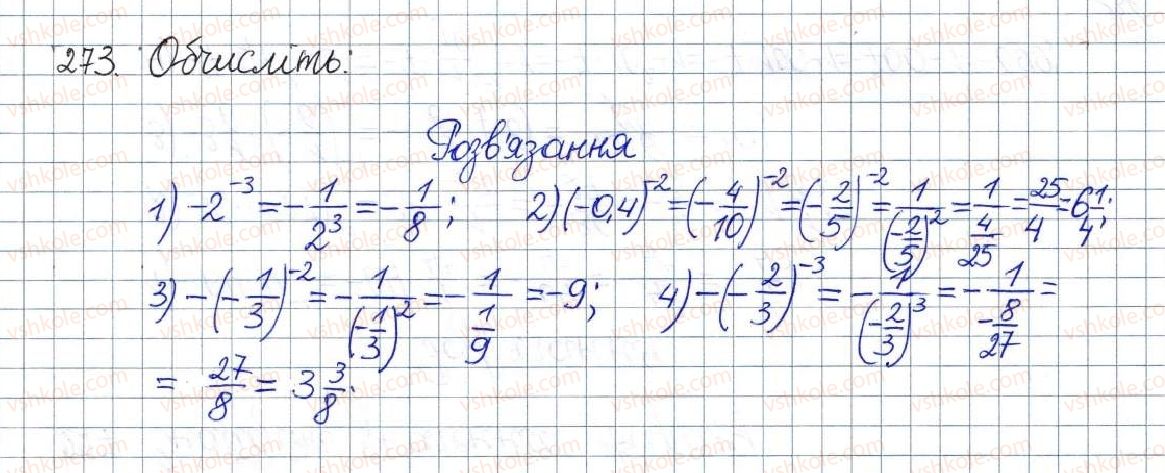 273. Обчисліть:
Розв'язання
1) -2^{-3} = -\frac{1}{2^3} = -\frac{1}{8}; 2) (-0,4)^{-2} = (-\frac{4}{10})^{-2} = (-\frac{2}{5})^{-2} = \frac{1}{(-\frac{2}{5})^2} = \frac{1}{\frac{4}{25}} = \frac{25}{4} = 6\frac{1}{4};
3) -(-\frac{1}{3})^{-2} = -\frac{1}{(-\frac{1}{3})^2} = -\frac{1}{\frac{1}{9}} = -9; 4) -(-\frac{2}{3})^{-3} = -\frac{1}{(-\frac{2}{3})^3} = -\frac{1}{-\frac{8}{27}} =
= \frac{27}{8} = 3\frac{3}{8}.